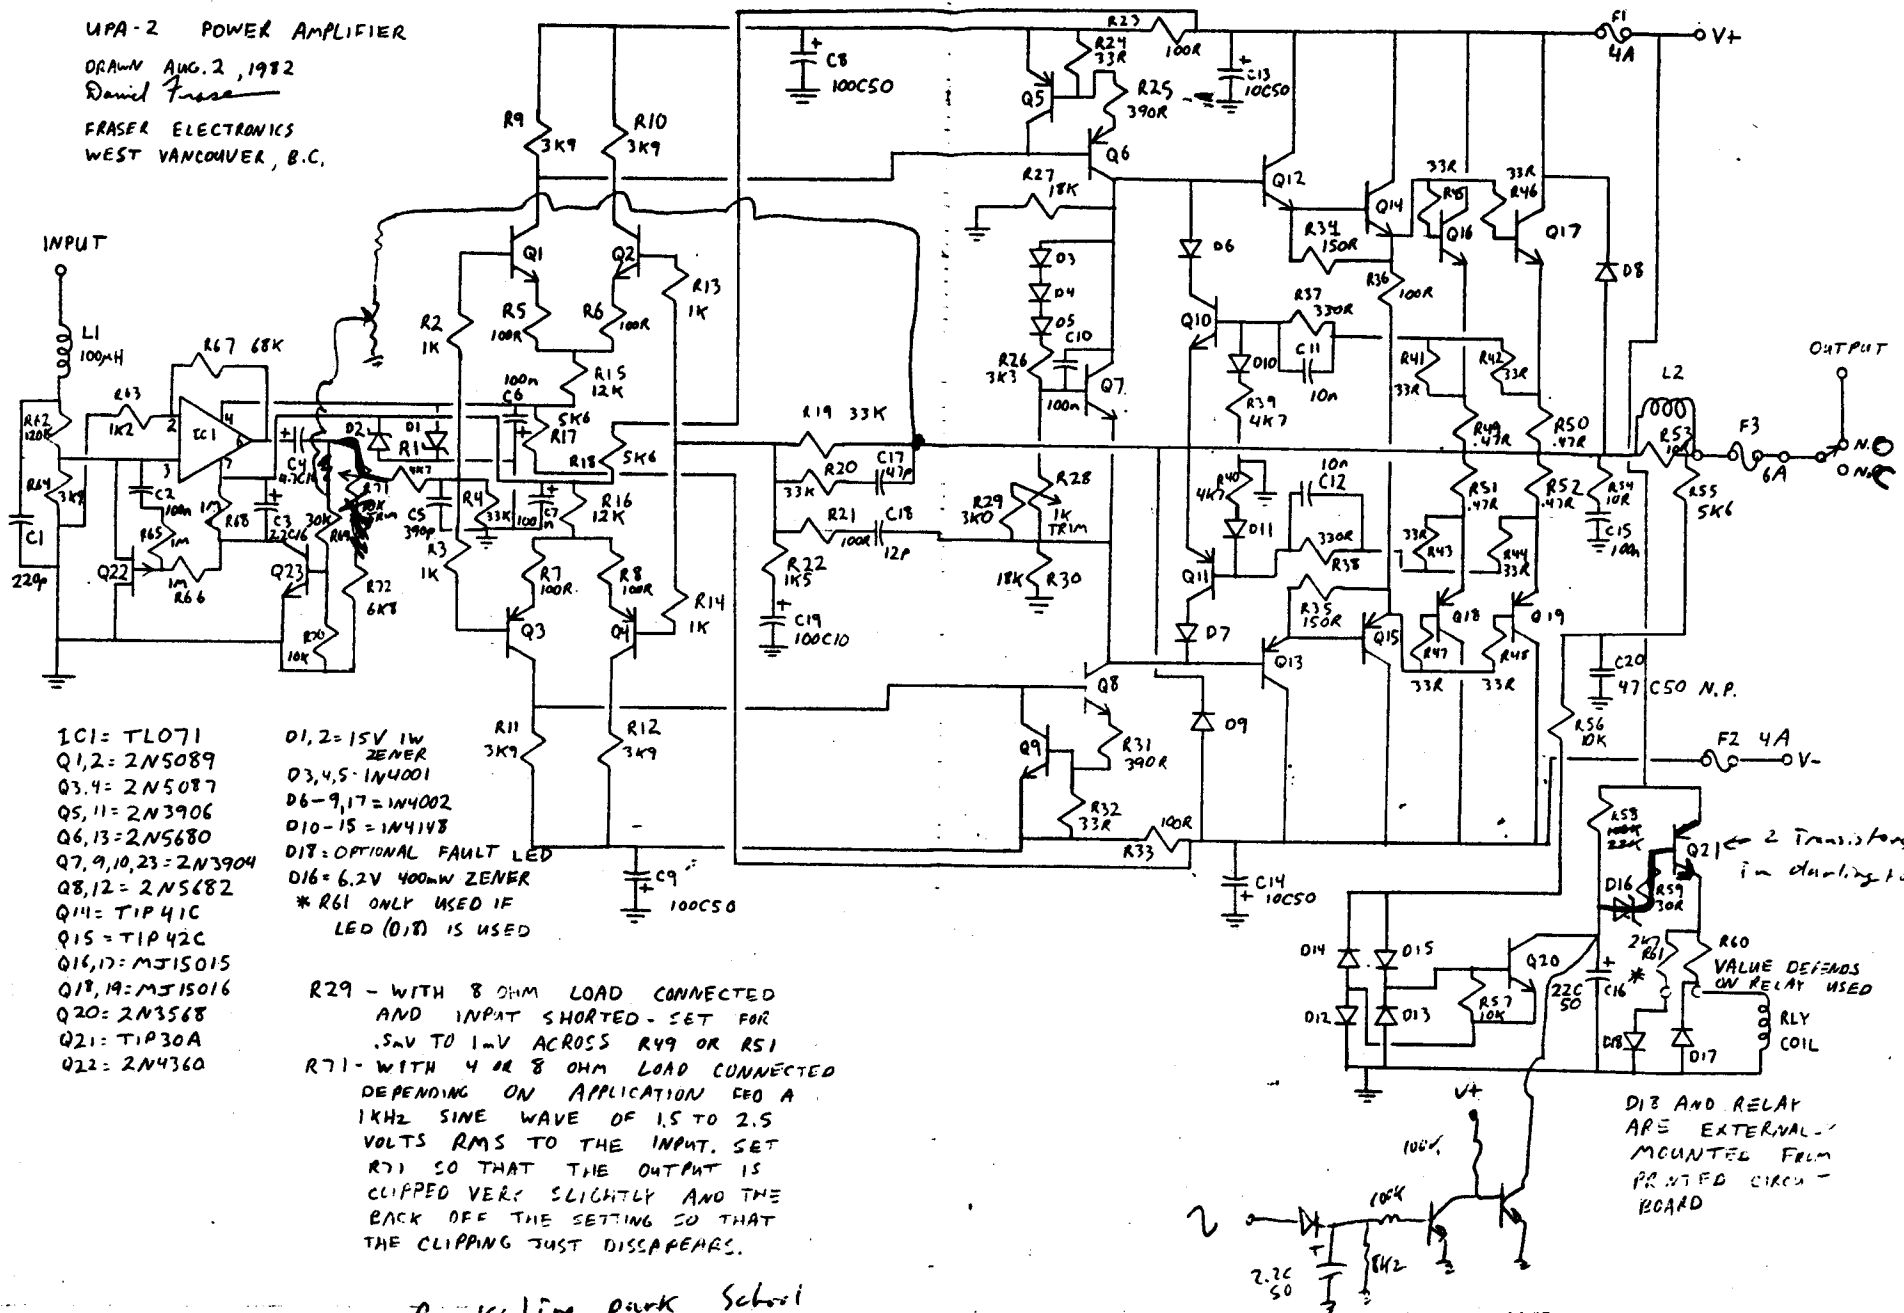 UPA-2 POWER AMPLIFIER
DRAWN AUG. 2, 1982
Daniel Fraser
FRASER ELECTRONICS
WEST VANCOUVER, B.C.
INPUT
L1
100µH
R62
120K
R63
1K2
R67 68K
IC1
2
3
4
6
7
R64
3K8
C1
220p
C2
100n
R65
1M
R66
1M
R68
1M
Q22
C3
22C16
Q23
C4
4.7C16
30K
R69
R70
10K
R71
10K
TRIM
R72
6K8
D2
D1
R1
4K7
C5
390p
R4
33K
R2
1K
R3
1K
R9
3K9
R10
3K9
Q1
Q2
R5
100R
R6
100R
R13
1K
R15
12K
100n
C6
5K6
R17
R18
5K6
C7
100n
R16
12K
R7
100R
R8
100R
R14
1K
Q3
Q4
R11
3K9
R12
3K9
C8
100C50
C9
100C50
R19 33K
R20
33K
C17
47p
R21
100R
C18
12p
R22
1K5
C19
100C10
R23
100R
R24
33R
Q5
R25
390R
Q6
C13
10C50
R27
18K
D3
D4
D5
R26
3K3
C10
100n
Q7
R28
1K
TRIM
R29
3K0
18K
R30
Q8
Q9
R31
390R
R32
33R
100R
R33
D9
C14
10C50
D6
Q10
R37
330R
C11
10n
D10
R39
4K7
R40
4K7
10n
C12
D11
330R
R38
Q11
D7
R35
150R
Q12
R34
150R
Q13
Q14
Q15
R36
100R
33R
R45
Q16
33R
R46
Q17
R41
33R
R42
33R
R49
.47R
R50
.47R
R51
.47R
R52
.47R
33R
R43
R44
33R
Q18
Q19
R47
33R
R48
33R
D8
F1
4A
V+
OUTPUT
L2
R53
10R
F3
6A
N.O
N.C
R54
10R
C15
100n
R55
5K6
C20
47 C50 N.P.
R56
10K
F2 4A
V-
R58
22K
Q21
2 Transistors
in
D16
R59
30R
2K7
R61
*
R60
VALUE DEPENDS
ON RELAY USED
D14
D15
D12
D13
Q20
R57
10K
22C
50
C16
D18
D17
RLY
COIL
D18 AND RELAY
ARE EXTERNAL-
MOUNTED FROM
PRINTED CIRCUIT
BOARD
V+
100K
8K2
2.2C
50
IC1= TL071
Q1,2= 2N5089
Q3,4= 2N5087
Q5,11= 2N3906
Q6,13= 2N5680
Q7,9,10,23= 2N3904
Q8,12= 2N5682
Q14= TIP41C
Q15= TIP42C
Q16,17= MJ15015
Q18,19= MJ15016
Q20= 2N3568
Q21= TIP30A
Q22= 2N4360
D1,2= 15V 1W
ZENER
D3,4,5- 1N4001
D6-9,17= 1N4002
D10-15= 1N4148
D18= OPTIONAL FAULT LED
D16= 6.2V 400mW ZENER
* R61 ONLY USED IF
LED (D18) IS USED
R29 - WITH 8 OHM LOAD CONNECTED
AND INPUT SHORTED - SET FOR
.5mV TO 1mV ACROSS R49 OR R51
R71- WITH 4 OR 8 OHM LOAD CONNECTED
DEPENDING ON APPLICATION FEED A
1KHz SINE WAVE OF 1.5 TO 2.5
VOLTS RMS TO THE INPUT. SET
R71 SO THAT THE OUTPUT IS
CLIPPED VERY SLIGHTLY AND THE
BACK OFF THE SETTING SO THAT
THE CLIPPING JUST DISSAPEARS.
Park School